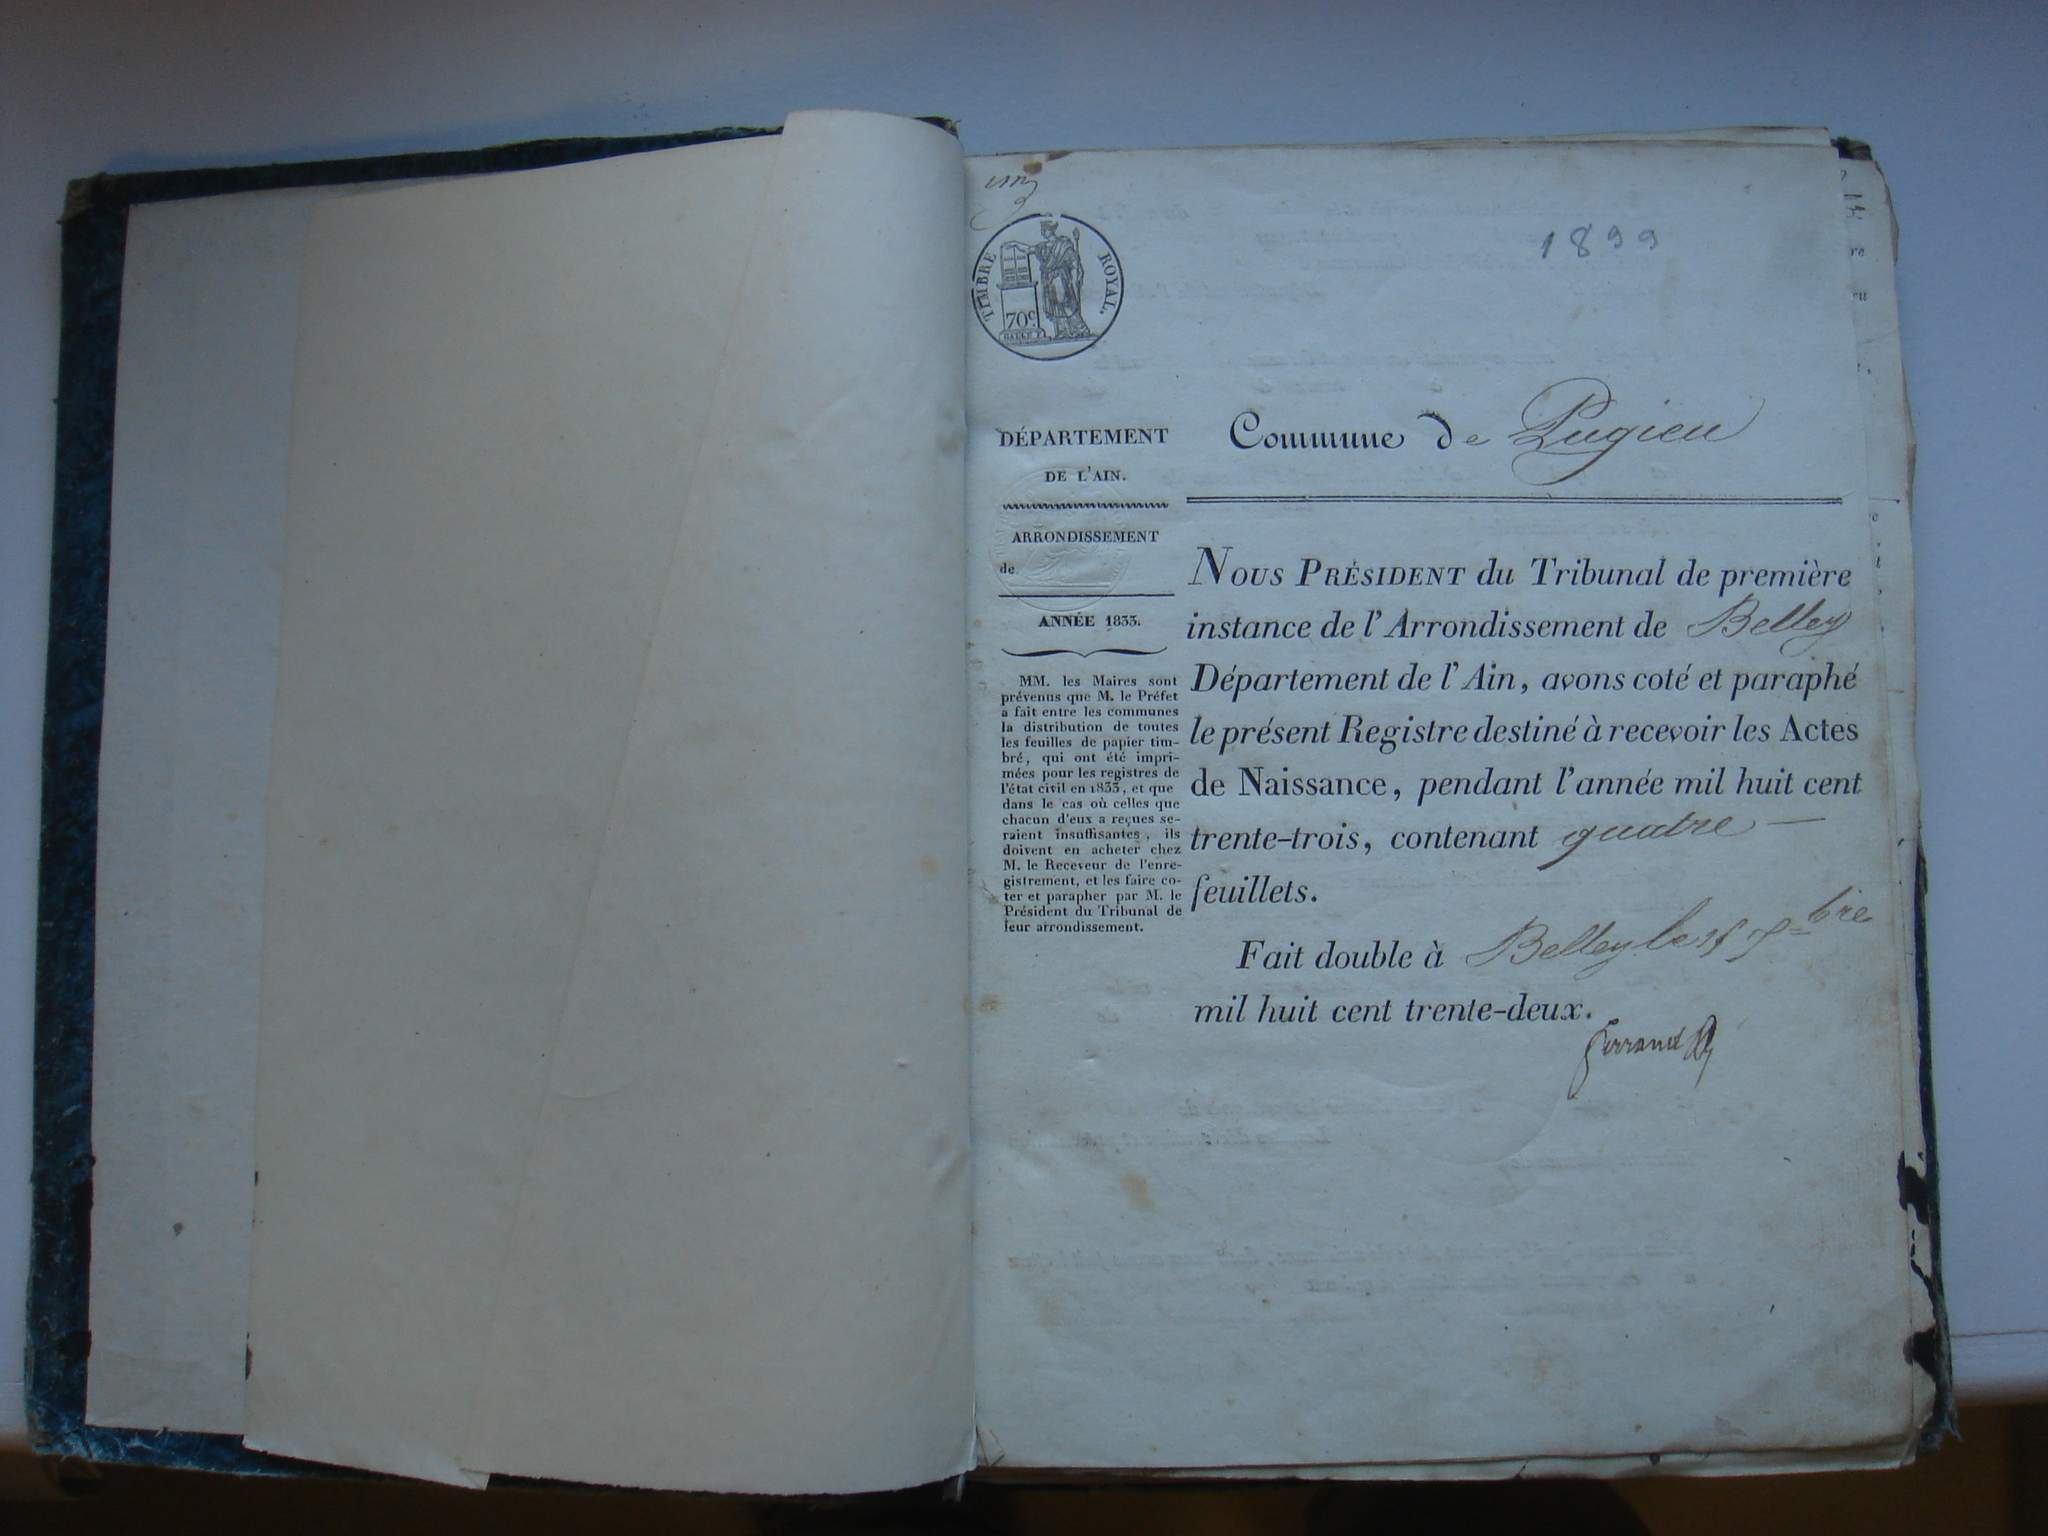 1899
TIMBRE ROYAL.
70c
DÉPARTEMENT
DE L'AIN.
ARRONDISSEMENT
de
ANNÉE 1833.
MM. les Maires sont
prévenus que M. le Préfet
a fait entre les communes
la distribution de toutes
les feuilles de papier tim-
bré, qui ont été impri-
mées pour les registres de
l'état civil en 1833, et que
dans le cas où celles que
chacun d'eux a reçues se-
raient insuffisantes, ils
doivent en acheter chez
M. le Receveur de l'enre-
gistrement, et les faire co-
ter et parapher par M. le
Président du Tribunal de
leur arrondissement.
Commune de Pugieu
NOUS PRÉSIDENT du Tribunal de première
instance de l'Arrondissement de Belley
Département de l'Ain, avons coté et paraphé
le présent Registre destiné à recevoir les Actes
de Naissance, pendant l'année mil huit cent
trente-trois, contenant quatre
feuillets.
Fait double à Belley le
mil huit cent trente-deux.